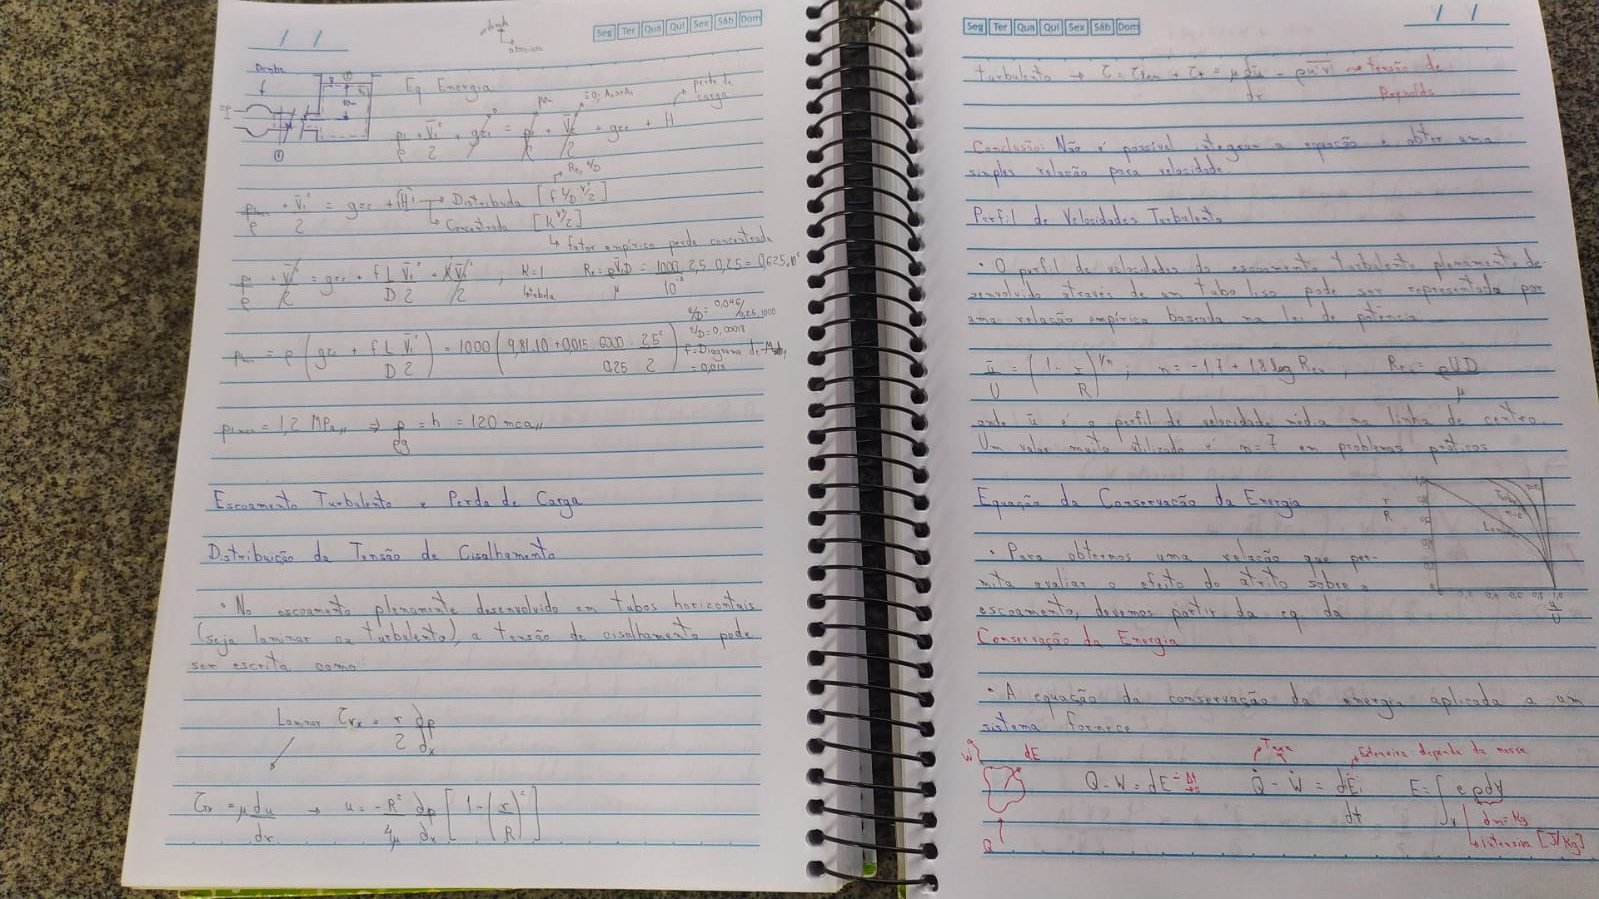 Seg Ter Qua Qui Sex Sáb Dom
/ /
Bomba
Eq Energia
perda de carga
p₁/ρ + V̄₁²/2 + gz₁ = p₂/ρ + V̄₂²/2 + gz₂ + H
V̄₁²/2 = gz₂ + H → Distribuída [f L/D V²/2]
↳ Concentrada [K V²/2]
↳ fator empírico perda concentrada
p₁/ρ + V̄₁²/2 = gz₂ + f L/D V̄₁²/2 + K V̄₁²/2 ; K=1 Re = ρV̄D/μ = 1000 2,5 0,25/10⁻³ = 0,625.10⁶
↳tabela
e/D = 0,046/0,25.1000
e/D = 0,00018
= ρ (gz₂ + f L/D V̄₁²/2) = 1000 (9,81.10 + 0,015 6000/0,25 2,5²/2) f = Diagrama de Moody
= 0,015
= 1,2 MPa,, ⇒ p/ρg = h = 120 mca,,
Escoamento Turbulento e Perda de Carga
Distribuição da Tensão de Cisalhamento
• No escoamento plenamente desenvolvido em tubos horizontais
(seja laminar ou turbulento), a tensão de cisalhamento pode
ser escrita como:
Laminar τrx = r/2 ∂p/∂x
τrx = μ du/dr → u = -R²/4μ ∂p/∂x [1-(r/R)²]
Seg Ter Qua Qui Sex Sáb Dom
/ /
turbulento → τ = τlam + τt = μ dū/dr - ρu'v' → tensão de
Reynolds
Conclusão: Não é possível integrar a equação e obter uma
simples relação para velocidade
Perfil de Velocidades Turbulento
• O perfil de velocidades do escoamento turbulento plenamente de-
senvolvido através de um tubo liso pode ser representada por
uma relação empírica baseada na lei de potência
ū/U = (1 - r/R)^1/n ; n = -1,7 + 1,8 log Reu , Reu = ρUD/μ
onde ū é o perfil de velocidade média na linha de centro.
Um valor muito utilizado é n=7 em problemas práticos
Equação da Conservação da Energia
r/R
ū/U
• Para obtermos uma relação que per-
mita avaliar o efeito do atrito sobre o
escoamento, devemos partir da eq da
Conservação da Energia
• A equação da conservação da energia aplicada a um
sistema fornece
W dE
Q
Taxa
Extensiva depende da massa
Q - W = dE Q̇ - Ẇ = dE/dt E = ∫ e ρdV
dm = Kg
↳ Intensiva [J/Kg]